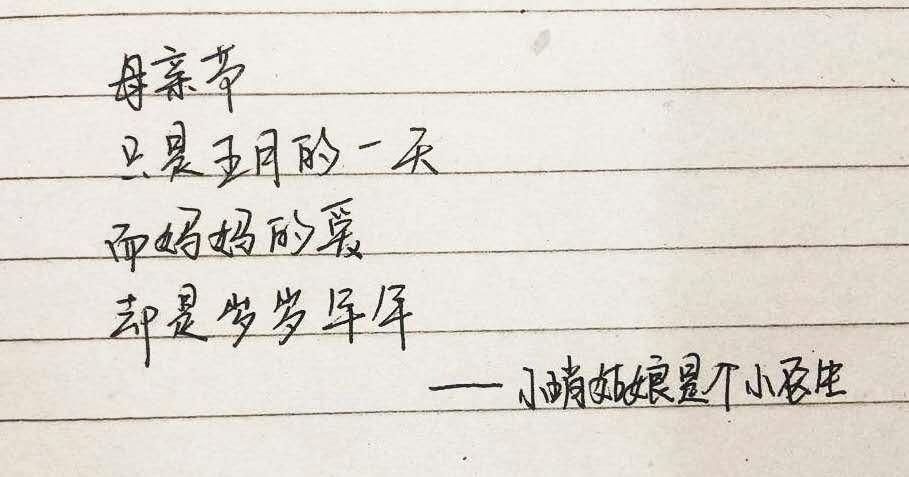 母亲节
只是五月的一天
而妈妈的爱
却是岁岁年年
——小哨姑娘是个小医生